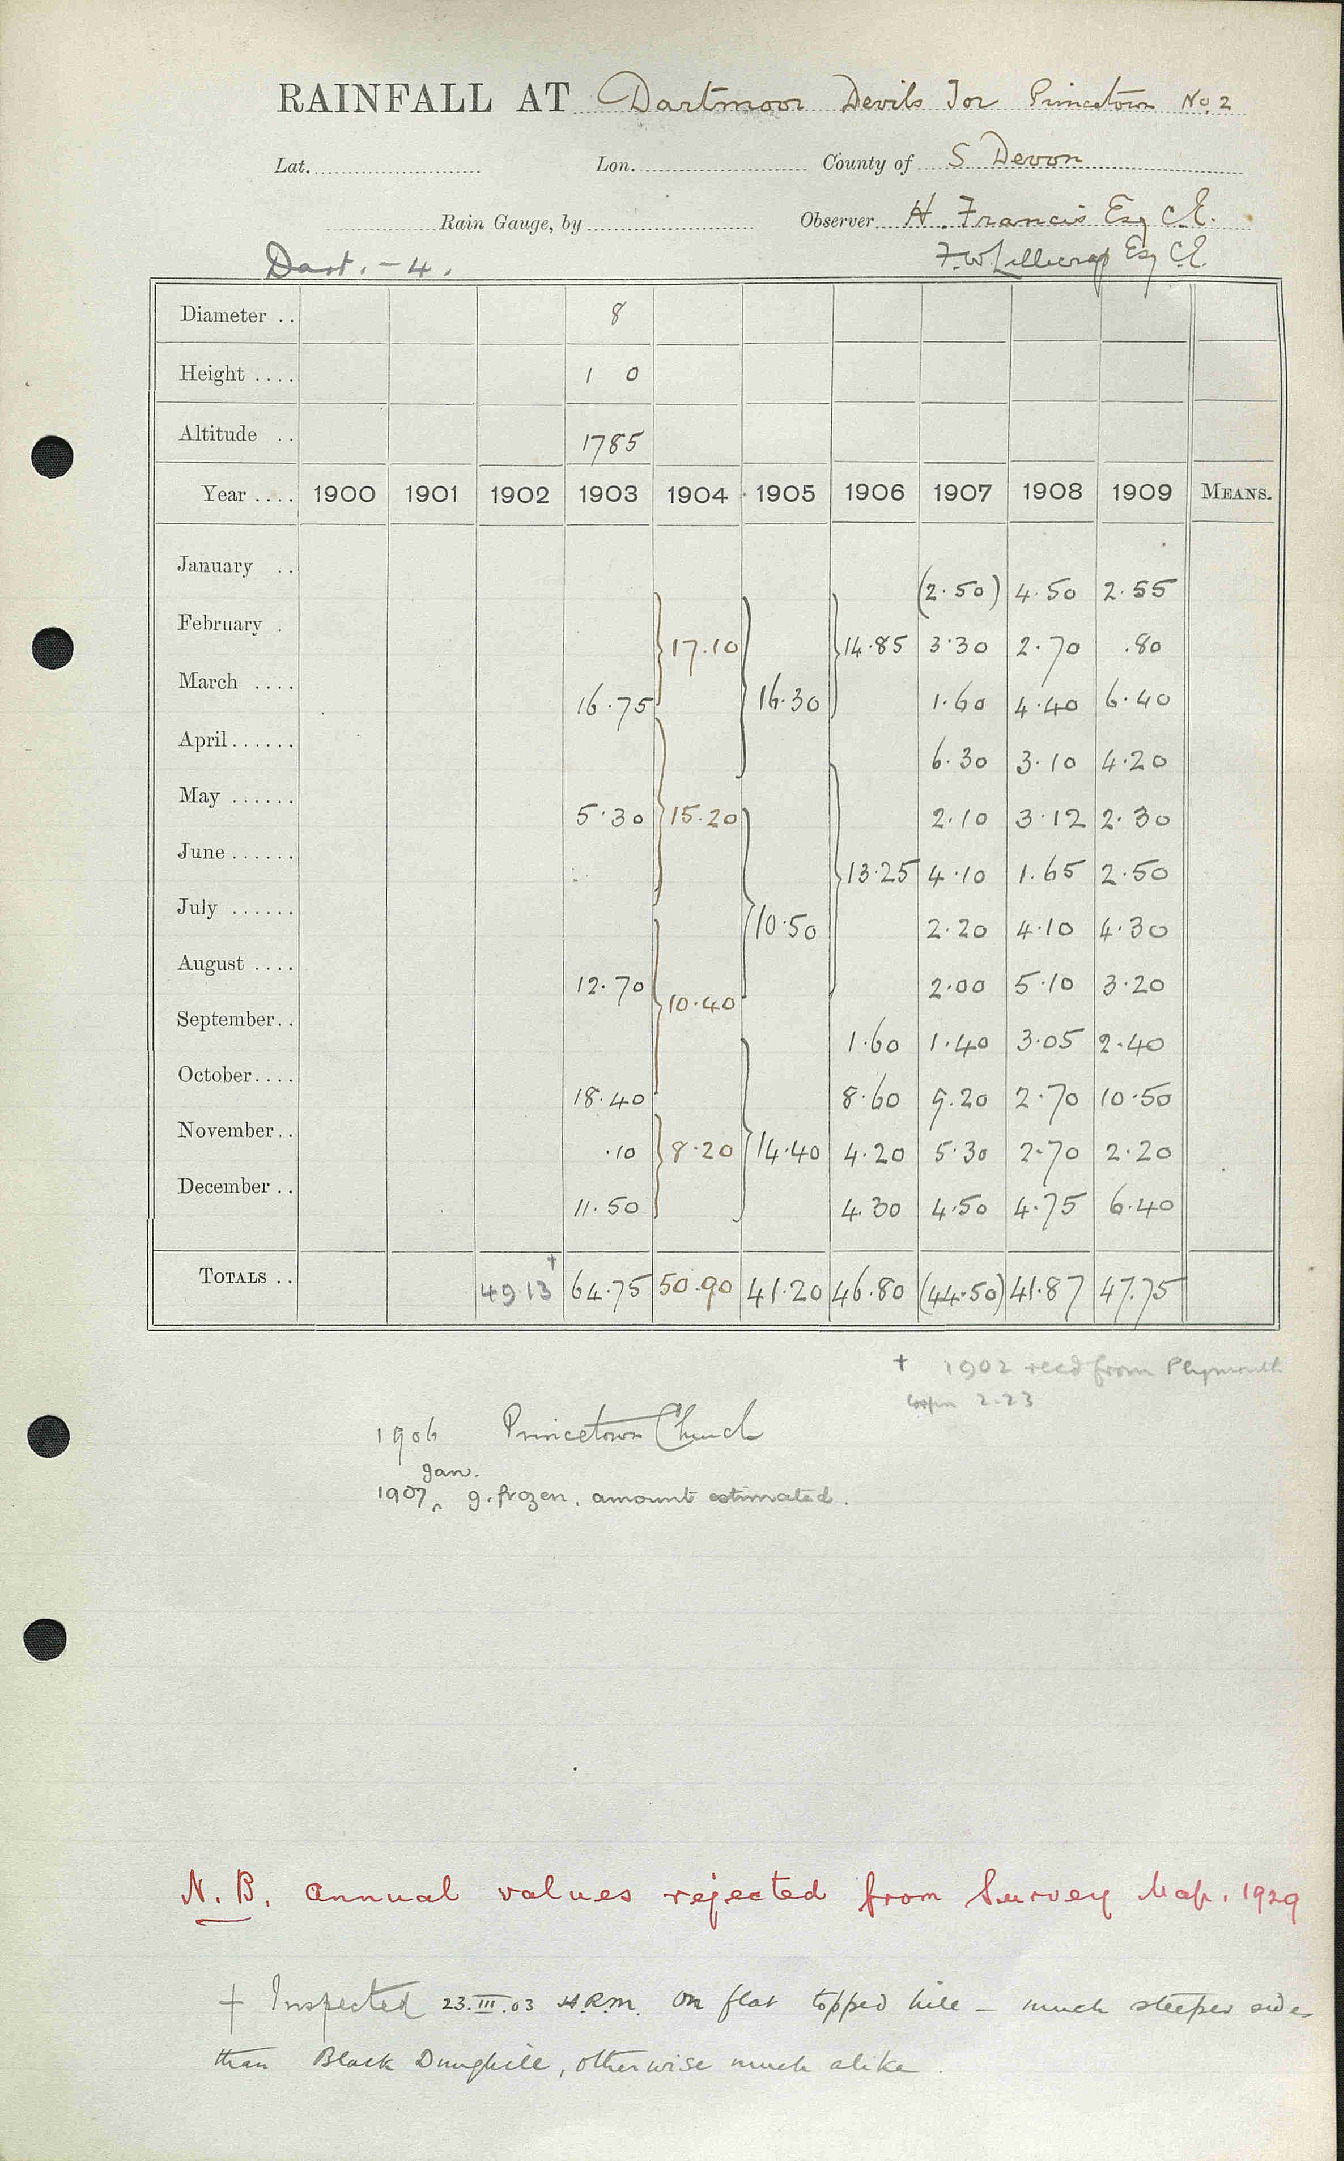 RAINFALL AT Dartmoor Devils Tor Princetown No. 2
Lat. Lon. County of S Devon
Rain Gauge, by Observer H. Francis Esq C.E.
Dart. - 4. F. W. Lillicrap Esq C.E.
Diameter .. 8
Height .... 1 0
Altitude .. 1785
Year .... 1900 1901 1902 1903 1904 1905 1906 1907 1908 1909 MEANS.
January .. (2.50) 4.50 2.55
February . 17.10 14.85 3.30 2.70 .80
March .... 16.75 16.30 1.60 4.40 6.40
April...... 6.30 3.10 4.20
May ...... 5.30 15.20 2.10 3.12 2.30
June...... 13.25 4.10 1.65 2.50
July ...... 10.50 2.20 4.10 4.30
August .... 12.70 10.40 2.00 5.10 3.20
September.. 1.60 1.40 3.05 2.40
October.... 18.40 8.60 9.20 2.70 10.50
November.. .10 8.20 14.40 4.20 5.30 2.70 2.20
December .. 11.50 4.30 4.50 4.75 6.40
TOTALS .. 49.13† 64.75 50.90 41.20 46.80 (44.50) 41.87 47.75
† 1902 recd from Plymouth
2.23
1906 Princetown Church
Jan.
1907 ‸ g. frozen, amount estimated.
N.B. Annual values rejected from Survey Map. 1929
† Inspected 23.III.03 H.R.M. on flat topped hill - much steeper sides
than Black Dunghill, otherwise much alike.